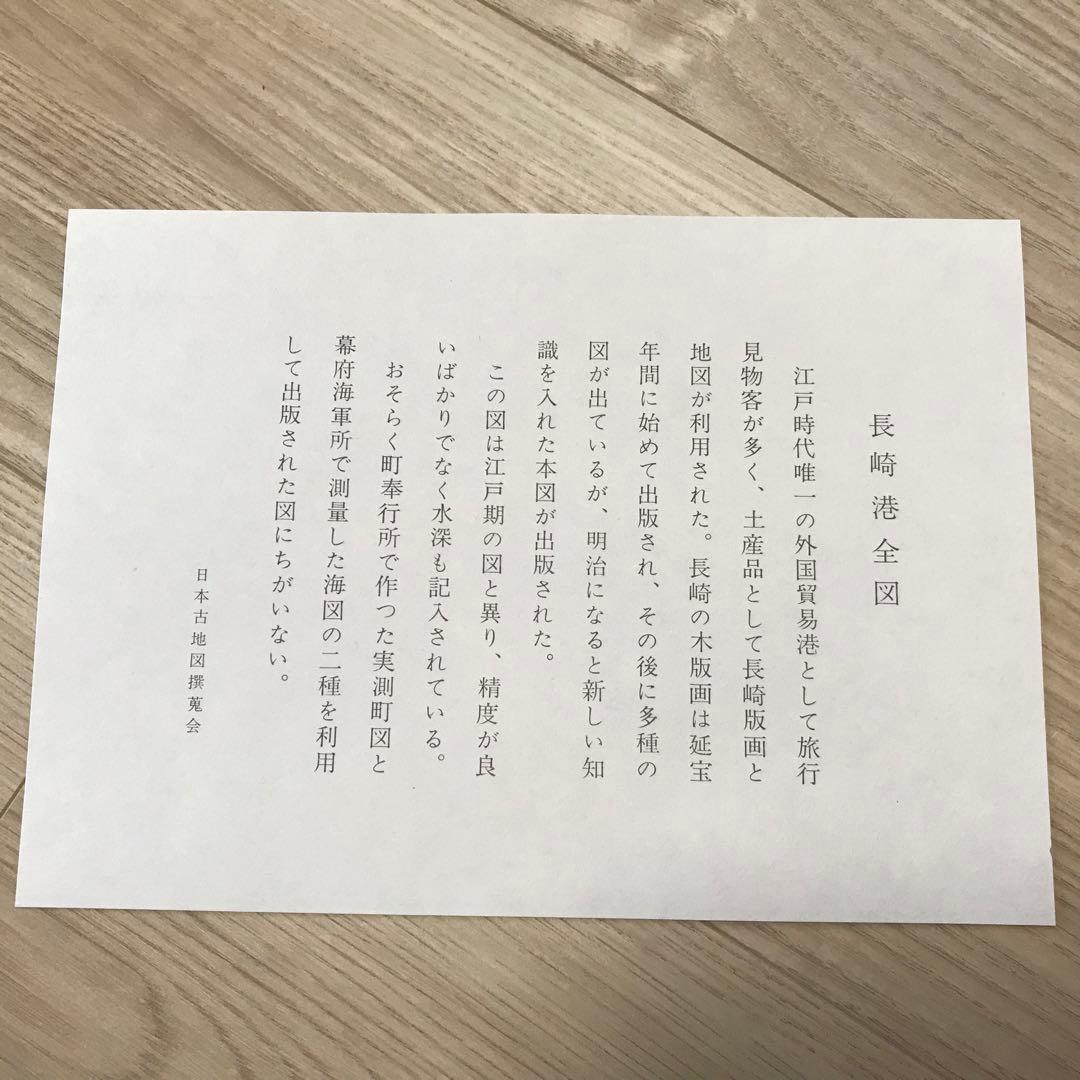 長崎港全図
江戸時代唯一の外国貿易港として旅行
見物客が多く、土産品として長崎版画と
地図が利用された。長崎の木版画は延宝
年間に始めて出版され、その後に多種の
図が出ているが、明治になると新しい知
識を入れた本図が出版された。
この図は江戸期の図と異り、精度が良
いばかりでなく水深も記入されている。
おそらく町奉行所で作つた実測町図と
幕府海軍所で測量した海図の二種を利用
して出版された図にちがいない。
日本古地図撰蒐会